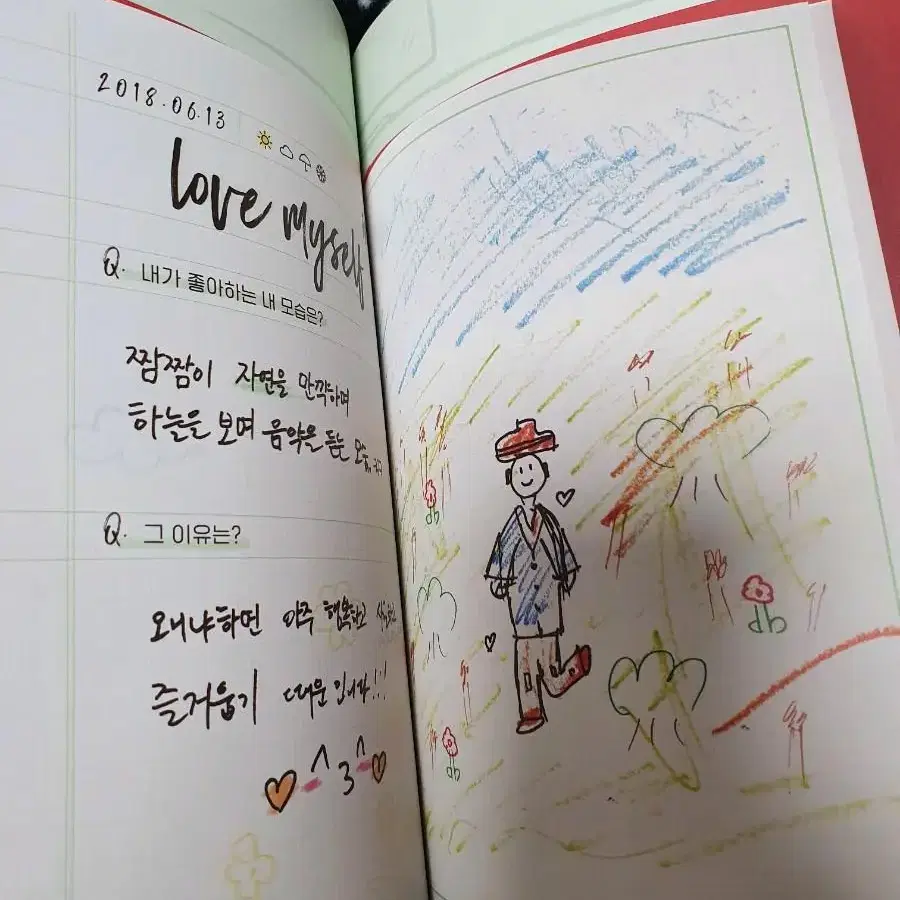 2018.06.13
love myself
Q. 내가 좋아하는 내 모습은?
짬짬이 자연을 만끽하며
하늘을 보며 음악을 듣는 모습
Q. 그 이유는?
왜냐하면 아주 행복하고
즐거웁기 때문입니다!!!
^3^